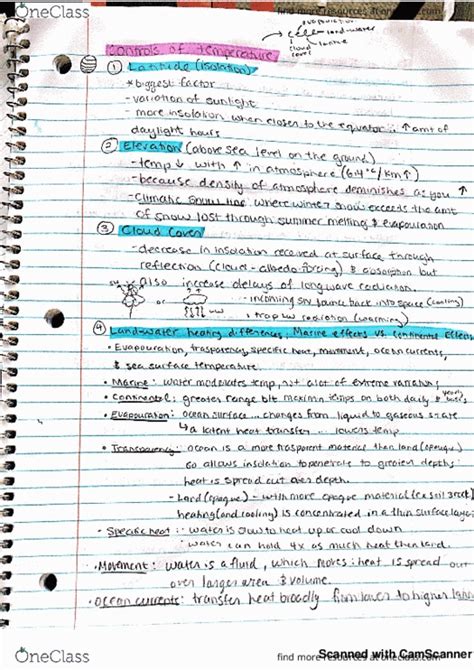 OneClass
find more resources at oneclass.com
evapouration
land-water
cloud cover
Controls of Temperature
① Latitude (isolation)
* biggest factor
- variation of sunlight
- more insolation when closer to the equator ∴ ↑ amt of
daylight hours
② Elevation (above sea level on the ground)
- temp ↓ with ↑ in atmosphere (6.4°C/km↑)
- because density of atmosphere diminishes as you ↑
- Climatic snow line where winter snow exceeds the amt
of snow lost through summer melting & evapouration
③ Cloud Cover
- decrease in insolation received at surface through
reflection (cloud-albedo forcing) & absorption but
also increase delays of longwave radiation.
- incoming SW back into space (cooling)
or
- trap LW radiation (warming)
④ Land-water heating differences, Marine effects vs. continental effects
• Evapouration, trasparency, specific heat, movement, ocean currents,
& sea surface temperature.
• Marine: water moderates temp, not a lot of extreme variations
• Continental: greater range b/t max & min temps on both daily & yearly basis
• Evapouration: ocean surface ... changes from liquid to gaseous state
↳ a latent heat transfer ... lowers temp
• Transparency: ocean is a more trasparent material than land (opaque)
so allows insolation to penetrate to greater depths
heat is spread out over depth.
- Land (opaque) - with more opaque material (ex soil & rock)
heating (and cooling) is concentrated in a thin surface layer
• Specific heat: water is slow to heat up or cool down
• water can hold 4x as much heat then land.
• Movement: water is a fluid, which moves : heat is spread out
over larger area & volume.
• Ocean currents: transfer heat broadly from lower to higher
Scanned with CamScanner
OneClass
find more resources at oneclass.com